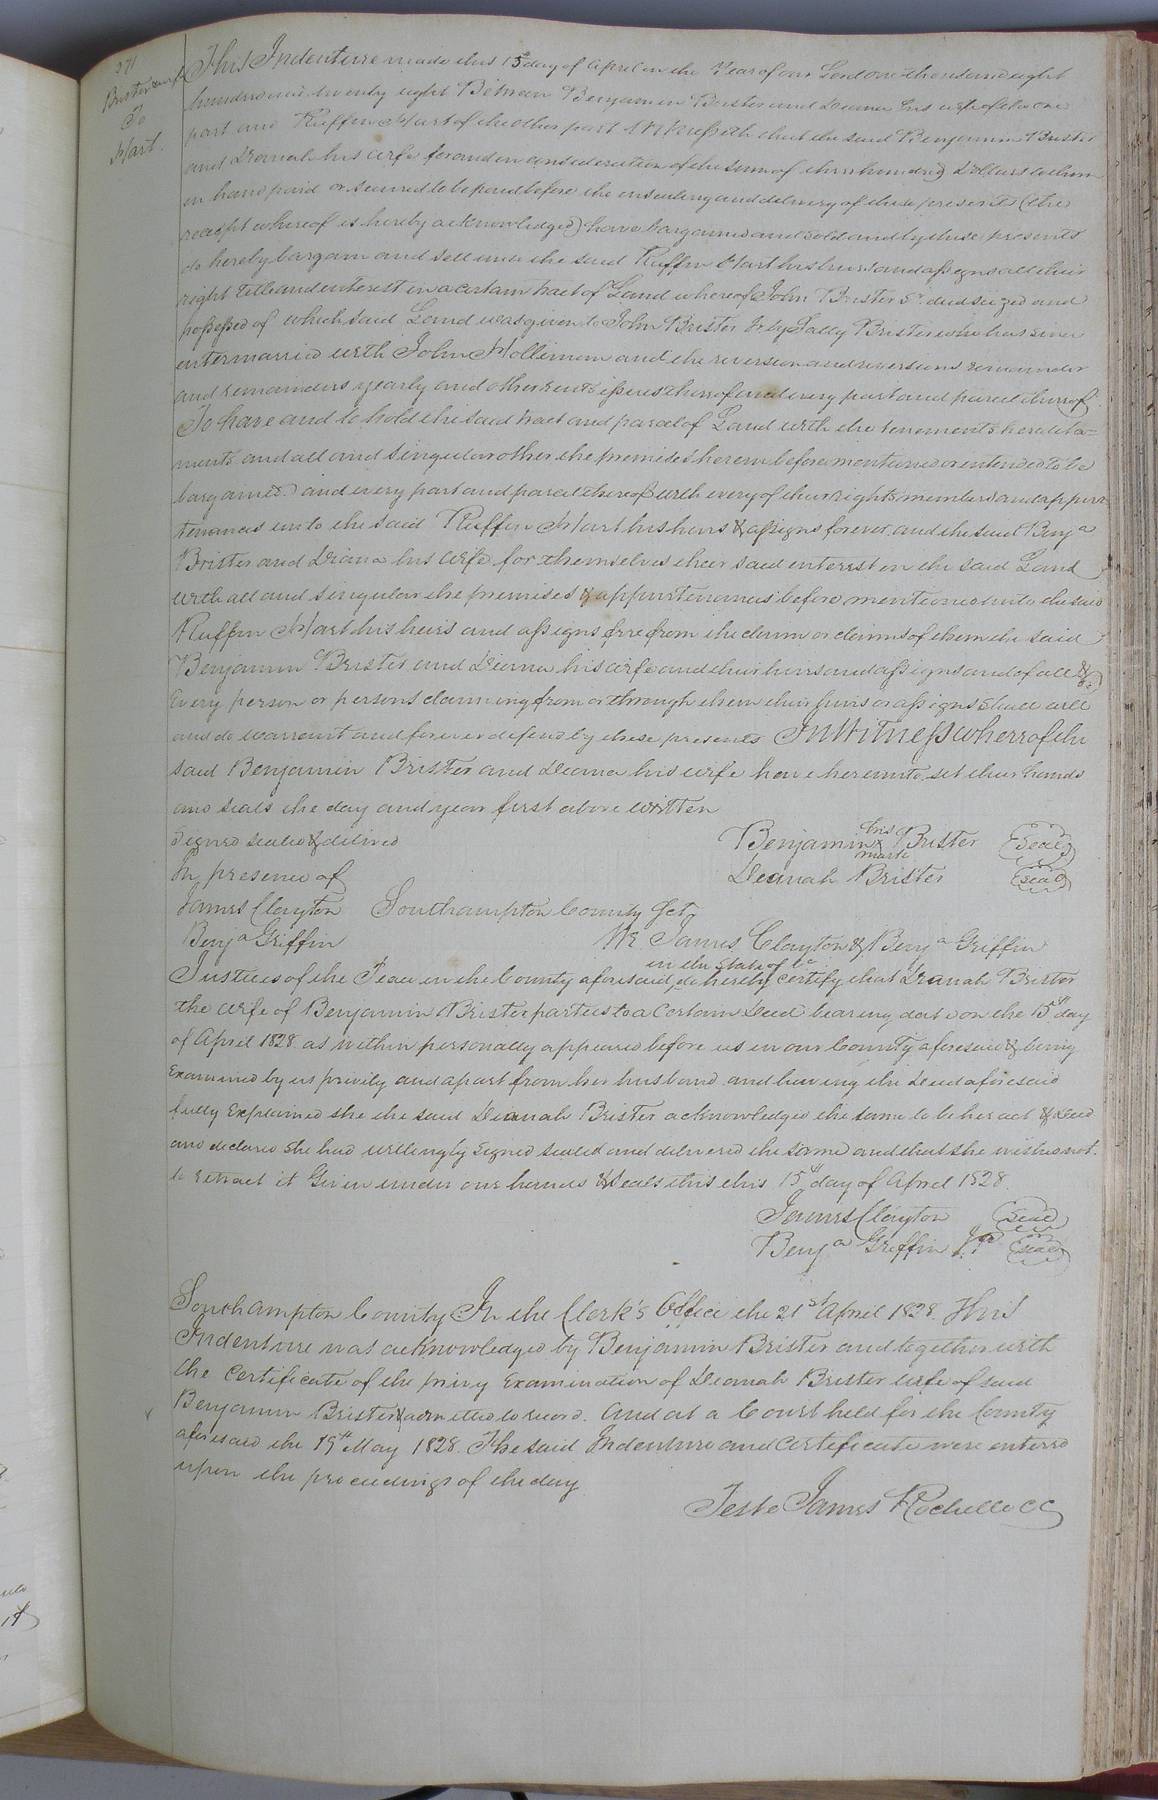 271
Brister & wife
To
Hart.
This Indenture made this 15th day of April in the Year of our Lord one thousand eight
hundred and twenty eight Between Benjamin Brister and Deana his wife of the one
part and Ruffin Hart of the other part Witnesseth that the said Benjamin Brister
and Deanah his wife for and in consideration of the sum of three hundred Dollars to them
in hand paid or secured to be paid before the ensealing and delivery of these presents (the
receipt whereof is hereby acknowledged) have bargained and sold and by these presents
do hereby bargain and sell unto the said Ruffin Hart his heirs and assigns all their
right title and interest in a certain tract of Land whereof John Brister Sr. died siezed and
possessed of which said Land was given to John Brister Jr by Sally Brister who has since
intermarried with John Holliman and the reversion and reversions remainder
and remainders yearly and other rents issues thereof and every part and parcel thereof
To have and to hold the said tract and parcel of Land with the tenements heredita=
ments and all and singular other the premises herein before mentioned or intended to be
bargained and every part and parcel thereof with every of their rights members and appur
tenances unto the said Ruffin Hart his heirs & assigns forever and the said Benja
Brister and Deana his wife for themselves their said interest in the said Land
with all and singular the premises & appurtenances before mentioned unto the said
Ruffin Hart his heirs and assigns free from the claim or claims of them the said
Benjamin Brister and Deana his wife and their heirs and assigns and of all &
Every person or persons claiming from or through them their heirs or assigns shall will
and do warrant and forever defend by these presents In Witness whereof the
said Benjamin Brister and Deana his wife have hereunto set their hands
and seals the day and year first above written
Signed sealed & delivered Benjamin his X mark Brister (seal)
In presence of Deanah Brister (seal)
James Clayton Southampton County Sct.
Benja Griffin We James Clayton & Benja Griffin
Justices of the Peace in the County aforesaid in the State of Va do hereby certify that Deanah Brister
the wife of Benjamin Brister parties to a Certain Deed bearing date on the 15th day
of April 1828 as within personally appeared before us in our County aforesaid & being
Examined by us privily and apart from her husband and having the Deed aforesaid
fully Explained she the said Deanah Brister acknowledged the same to be her act & Deed
and declared she had willingly Signed sealed and delivered the same and that she wishes not
to retract it Given under our hands & Seals this this 15th day of April 1828
James Clayton (seal)
Benja Griffin J.P. (seal)
Southampton County In the Clerk's Office the 21st April 1828. This
Indenture was acknowledged by Benjamin Brister and together with
the Certificate of the privy Examination of Deanah Brister wife of said
Benjamin Brister & admitted to record. And at a Court held for the County
aforesaid the 19th May 1828 The said Indenture and Certificate were entered
upon the proceedings of the day
Teste James Rochelle CC